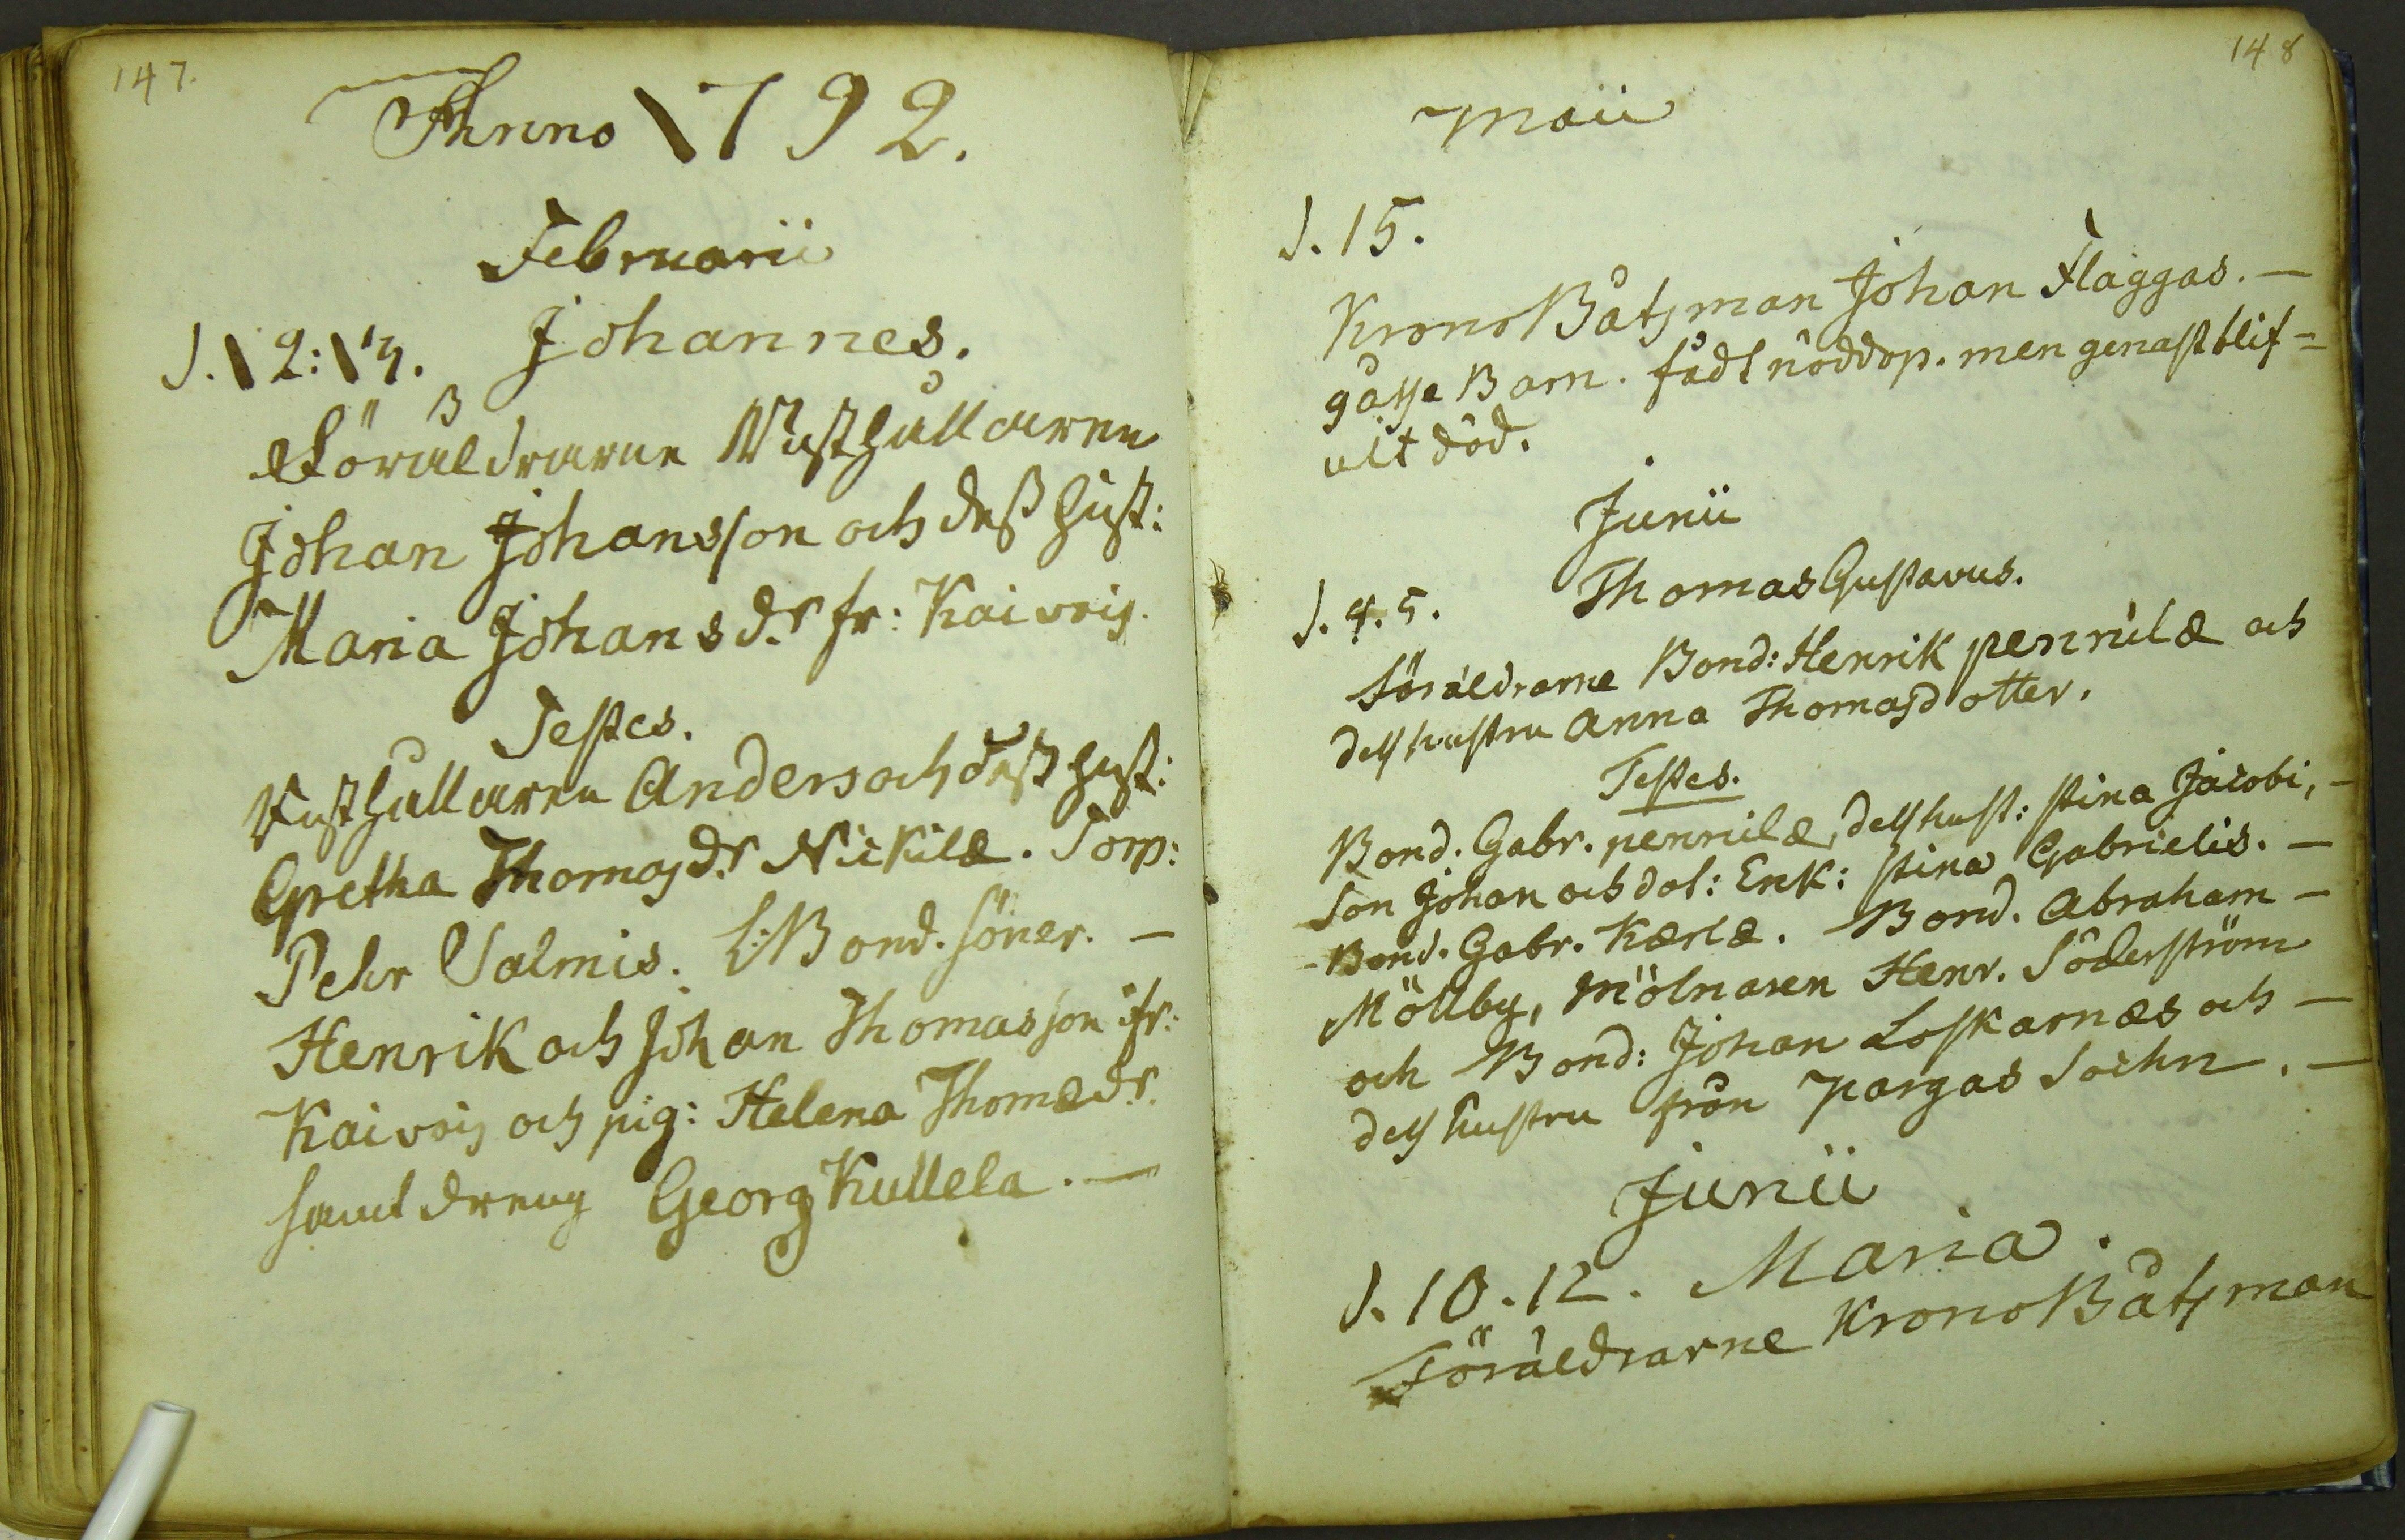 147.
Anno 1792.
Februarii
d. 12: 13. Johannes.
Föräldrarne Rusthållaren
Johan Johansson och dess Hust:
Maria Johansd.r fr: Kaivois.
Testes.
Rusthållaren Anders och dess Hust:
Gretha Thomasd.r Nickilæ. Torp:
Pehr Salmis. Bond. söner. —
Henrik och Johan Thomasson ifr:
Kaivois och pig: Helena Thomædr.
samt dreng Georg Kullela. —
148
Maii
d. 15.
Krono Båtsman Johan Flaggas. —
gåsse Barn. fådt nöddop. men genast blif=
uit död.
Junii
d. 4. 5. Thomas Gustavus.
Föräldrarne Bond: Henrik pennilæ och
dess hustru Anna Thomasdotter.
Testes.
Bond. Gabr. pennilæ, dess hust: stina Jacobi, —
Son Johan och dot: Enk: stina Gabrielis. —
Bond. Gabr. Kærlæ. Bond. Abraham —
Möllby, Mölnaren Henr. Söderström
och Bond: Johan Loskarnæs och —
dess hustru från Pargas Sochn. —
Junii
d. 10. 12. Maria.
Föräldrarne Krono Båtsman